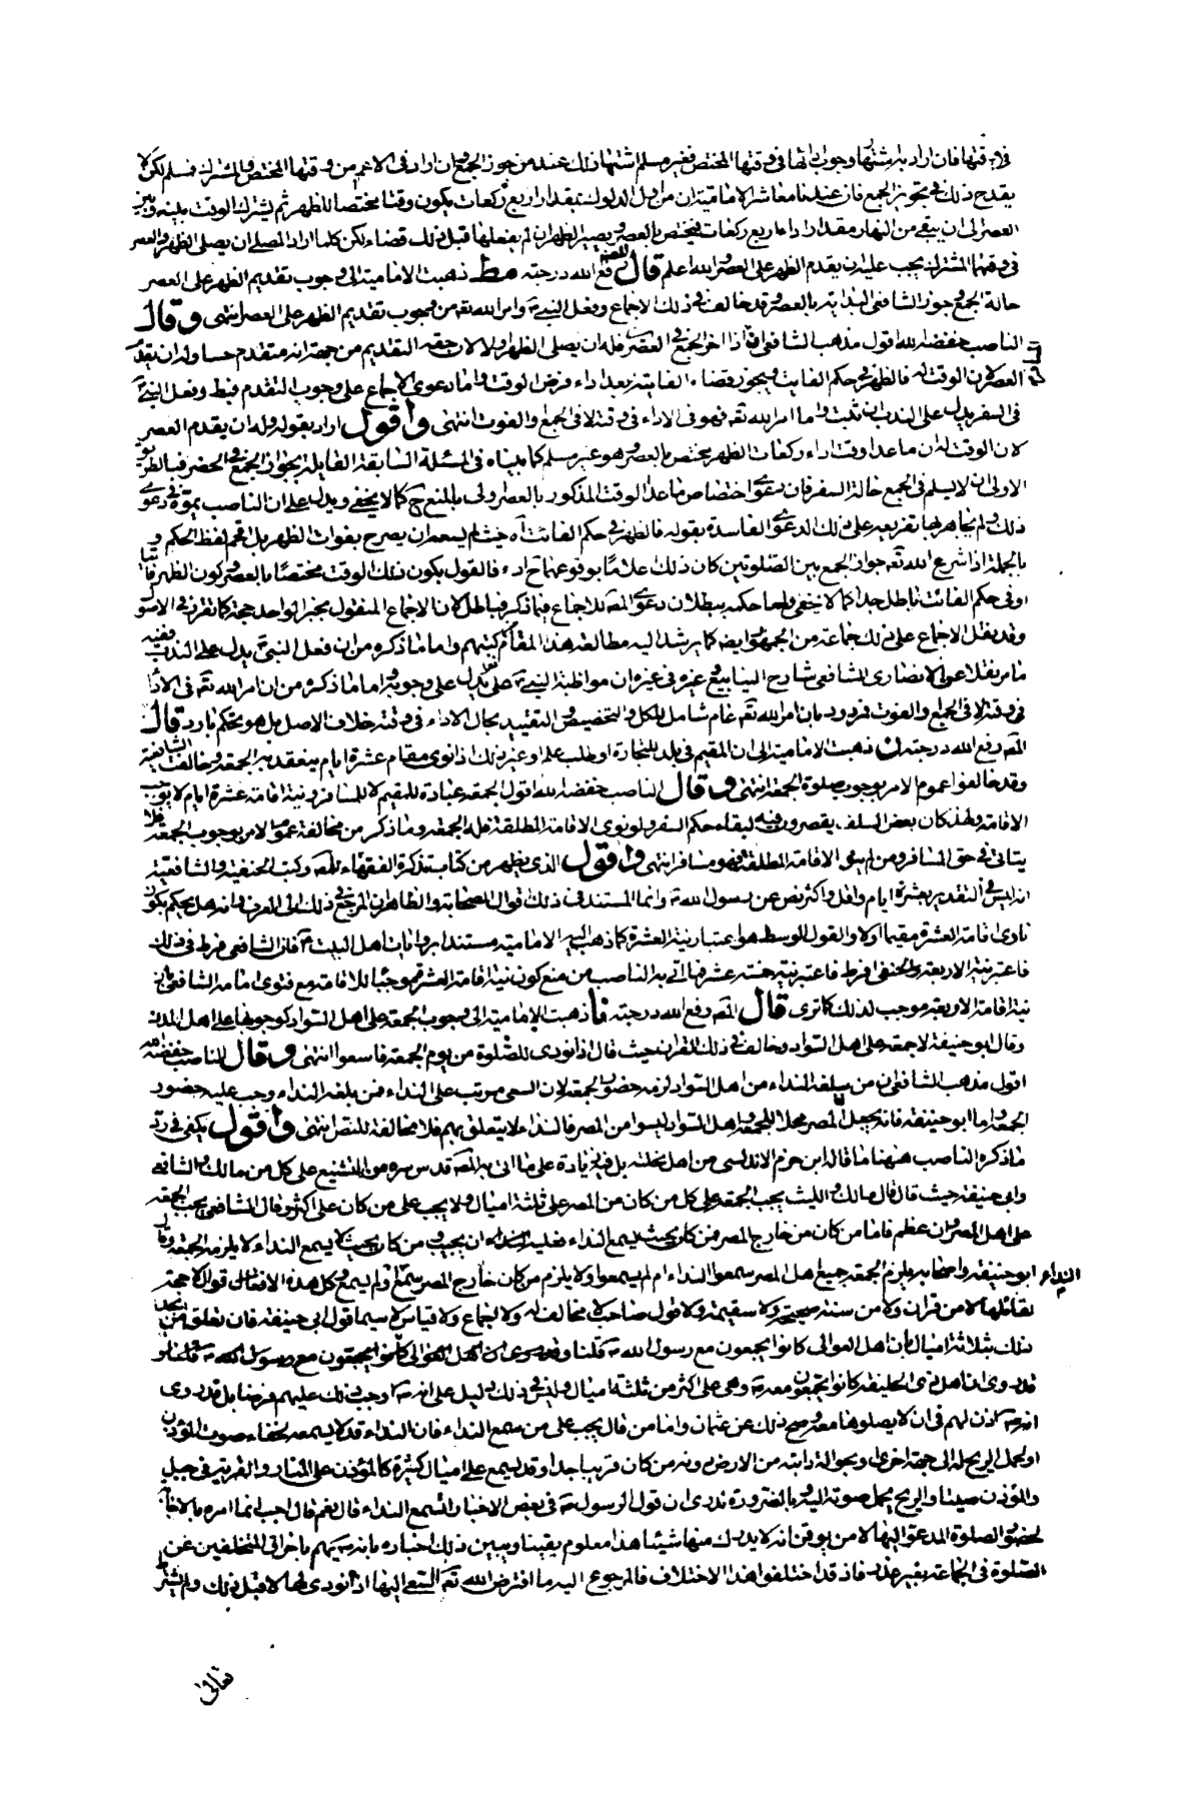 في وقتها فان اراد باشتهار وجوب اتيانها في وقتها المختص فغير مسلم اشتهار ذلك عند من جوز الجمع وان اراد في الاعم من وقتها المختص والمشترك فمسلم لكن لا
يقدح ذلك في تجويز الجمع فان عندنا معاشر الامامية ان من اول الدلوك بمقدار اربع ركعات يكون وقتا مختصا للظهر ثم يشترك الوقت بينه وبين
العصر الى ان يبقى من النهار مقدار اداء اربع ركعات فيختص بالعصر ويصير الظهر ان لم يفعلها قبل ذلك قضاء لكن كلما اراد المصلي ان يصلي الظهر والعصر
في وقتهما المشترك يجب عليه ان يقدم الظهر على العصر والله اعلم قال المصنف رفع الله درجته مط ذهبت الامامية الى وجوب تقديم الظهر على العصر
حالة الجمع وجوز الشافعي البدأة بالعصر وقد خالف في ذلك الاجماع وفعل النبي ص وامر الله تعه من وجوب تقديم الظهر على العصر انتهى وقال
الناصب خفضه الله اقول مذهب الشافعي انه اذا اخر الجمع في العصر فله ان يصلي الظهر اولا لان حقه التقديم من جهة انه متقدم حسا وله ان يقدم
العصر لان الوقت له فالظهر في حكم الفايت ويجوز قضاء الفايتة بعد اداء فرض الوقت واما دعوى الاجماع على وجوب التقدم فبط وفعل النبي ص
في السفر يدل على الندب ان ثبت واما امر الله تعه فهو في الاداء في وقته لا في الجمع والفوت انتهى واقول اراد بقوله وله ان يقدم العصر
لان الوقت له ان ما عدا وقت اداء ركعات الظهر يختص بالعصر وهو غير مسلم كما بيناه في المسئلة السابقة القايلة بجواز الجمع في الحضر فبالطريق
الاولى ان لا يسلم في الجمع حالة السفر فان دعوى اختصاص ما عدا الوقت المذكور بالعصر اولى بالمنع ح كما لا يخفى ويدل على ان الناصب يموه في دعوى
ذلك ولم يجاهر بها تفريعه على ذلك الدعوى الفاسدة بقوله فالظهر في حكم الفائت اه حيث لم يسعه ان يصرح بفوات الظهر بل اقحم لفظ الحكم و
بالجملة اذا شرع الله تعه جواز الجمع بين الصلوتين كان ذلك علامة بوقوعهما ح اداء فالقول بكون ذلك الوقت مختصا بالعصر وكون الظهر فائتا
او في حكم الفائت باطل جدا كما لا يخفى واما حكمه ببطلان دعوى المصه للاجماع فيما ذكر فباطل لان الاجماع المنقول بخبر الواحد حجة كما تقرر في الاصول
وقد نقل الاجماع على ذلك جماعة من الجمهور ايضا كما يرشد اليه مطالعة هذا المقام كتبهم واما ما ذكره من ان فعل النبي يدل على الندب ففيه
ما مر نقلا عن الانصاري الشافعي شارح الينابيع وغيره في غيره ان مواظبة النبي ص على فعل يدل على وجوبه واما ما ذكره من ان امر الله تعه في الاداء
في وقته لا في الجمع والفوت فمردود بان امر الله تعه عام شامل للكل والتخصيص والتقييد بحال الاداء في وقته خلاف الاصل بل هو تحكم بارد قال
المصه رفع الله درجته ن ذهبت الامامية الى ان المقيم في بلد للتجارة او طلب علم او غير ذلك اذا نوى مقام عشرة ايام ينعقد به الجمعة وخالف الشافعية
وقد خالفوا عموم الامر بوجوب صلوة الجمعة انتهى وقال الناصب خفضه الله اقول الجمعة عبادة للمقيم لا للمسافر ونية اقامة عشرة ايام لا يوجب
الاقامة ولهذا كان بعض السلف يقصرون فيه لبقاء حكم السفر ولو نوى الاقامة المطلقة فله الجمعة وما ذكر من مخالفة عموم الامر بوجوب الجمعة فلا
يتاتى في حق المسافر ومن لم ينو الاقامة المطلقة فهو مسافر انتهى واقول الذي يظهر من كتاب تذكرة الفقهاء للمصه وكتب الحنفية والشافعية
انه ليس في التقدير بعشرة ايام واقل واكثر نص عن رسول الله ص وانما المستند في ذلك اقوال الصحابة والظاهر ان المرجع في ذلك الى العرف فانه هل يحكم بكون
ناوى اقامة العشرة مقيما او لا والقول الوسط هو اعتبار نية العشرة كما ذهب اليه الامامية مستندا بروايات اهل البيت ع فان الشافعي فرط في ذلك
فاعتبر نية الاربعة والحنفي افرط فاعتبر نية خمسة عشر فما اتى به الناصب من منع كون نية اقامة العشرة موجبا للاقامة مع فتوى امامه الشافعي بان
نية اقامة الاربعة موجب لذلك كما ترى قال المصه رفع الله درجته نا ذهبت الامامية الى وجوب الجمعة على اهل السواد كوجوبها على اهل المدن
وقال ابو حنيفة لا جمعة على اهل السواد وخالف في ذلك القران حيث قال اذا نودى للصلوة من يوم الجمعة فاسعوا انتهى وقال الناصب خفضه الله
اقول مذهب الشافعي ان من يبلغه النداء من اهل السواد لزمه حضور الجمعة لان السعى مرتب على النداء فمن بلغه النداء وجب عليه حضور
الجمعة واما ابو حنيفة فانه يجعل المصر محلا للجمعة واهل السواد ليسوا من المصر فالنداء لا يتعلق بهم فلا مخالفة للنص انتهى واقول يكفي في رد
ما ذكره الناصب ههنا ما قاله ابن حزم الاندلسي من اهل نحلته بل فيه زيادة على ما اتى به المصه قدس سره من التشنيع على كل من مالك والشافعي
وابي حنيفة حيث قال قال مالك والليث يجب الجمعة على كل من كان من المصر على ثلثة اميال ولا يجب على من كان على اكثر وقال الشافعي يجب الجمعة
على اهل المصر وان عظم فاما من كان من خارج المصر فمن كان بحيث يسمع النداء فعليه ان يجيب ومن كان بحيث لا يسمع النداء لا يلزمه الجمعة وقال
ابو حنيفة واصحابه يلزم الجمعة جميع اهل المصر سمعوا النداء ام لم يسمعوا ولا يلزم من كان خارج المصر سمع او لم يسمع وكل هذه الاقوال لا حجة
لقائلها لا من قران ولا من سنة صحيحة ولا سقيمة ولا قول صاحب لا مخالف له ولا اجماع ولا قياس لا سيما قول ابي حنيفة فان تعلق من يحد
ذلك بثلاثة اميال بان اهل العوالى كانوا يجمعون مع رسول الله ص قلنا وقد روى ان اهل العوالى كانوا يجمعون مع رسول الله ص
قد روى ان اهل ذى الحليفة كانوا يجمعون معه ص وهي على اكثر من ثلثة اميال وليس في ذلك دليل على انه ص اوجب ذلك عليهم فرضا بل قد روى
انه ص اذن لهم في ان لا يصلوها معه وصح ذلك عن عثمان واما من قال يجب على من سمع النداء فان النداء قد لا يسمعه لخفاء صوت المؤذن
او لحمل الريح له الى جهة اخرى او لحوالة رابية من الارض دونه من كان قريبا جدا وقد يسمع على اميال كثيرة كالمؤذن على المنار والقرية في جبل
والمؤذن صيتا والريح يحمل صوته اليه وبالضرورة ندرى ان قول الرسول ص في بعض الاخبار اتسمع النداء قال نعم قال اجب انما امره بالاجابة
لحضور الصلوة المدعو اليها لا من يوقن انه لا يدرك منها شيئا هذا معلوم يقينا ويبين ذلك اخباره بانه يهم باحراق المتخلفين عن
الصلوة في الجماعة بغير عذر فاذ قد اختلفوا هذا الاختلاف فالمرجوع اليه ما افترض الله تعه السعى اليها اذا نودى لها لا قبل ذلك ولم يشترط
تعالى